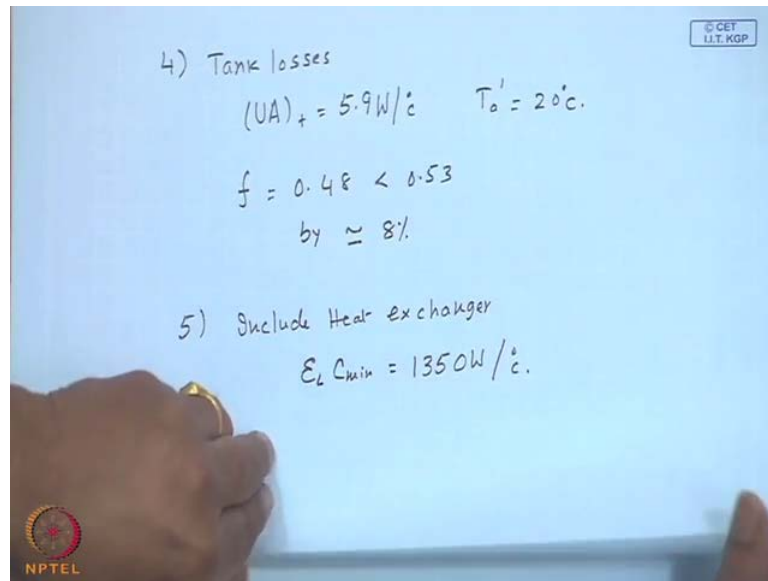 © CET
I.I.T. KGP
4) Tank losses
(UA)t = 5.9W/°c T₀' = 20°c.
f = 0.48 < 0.53
by ≃ 8%
5) Include Heat exchanger
εL Cmin = 1350W/°c.
NPTEL